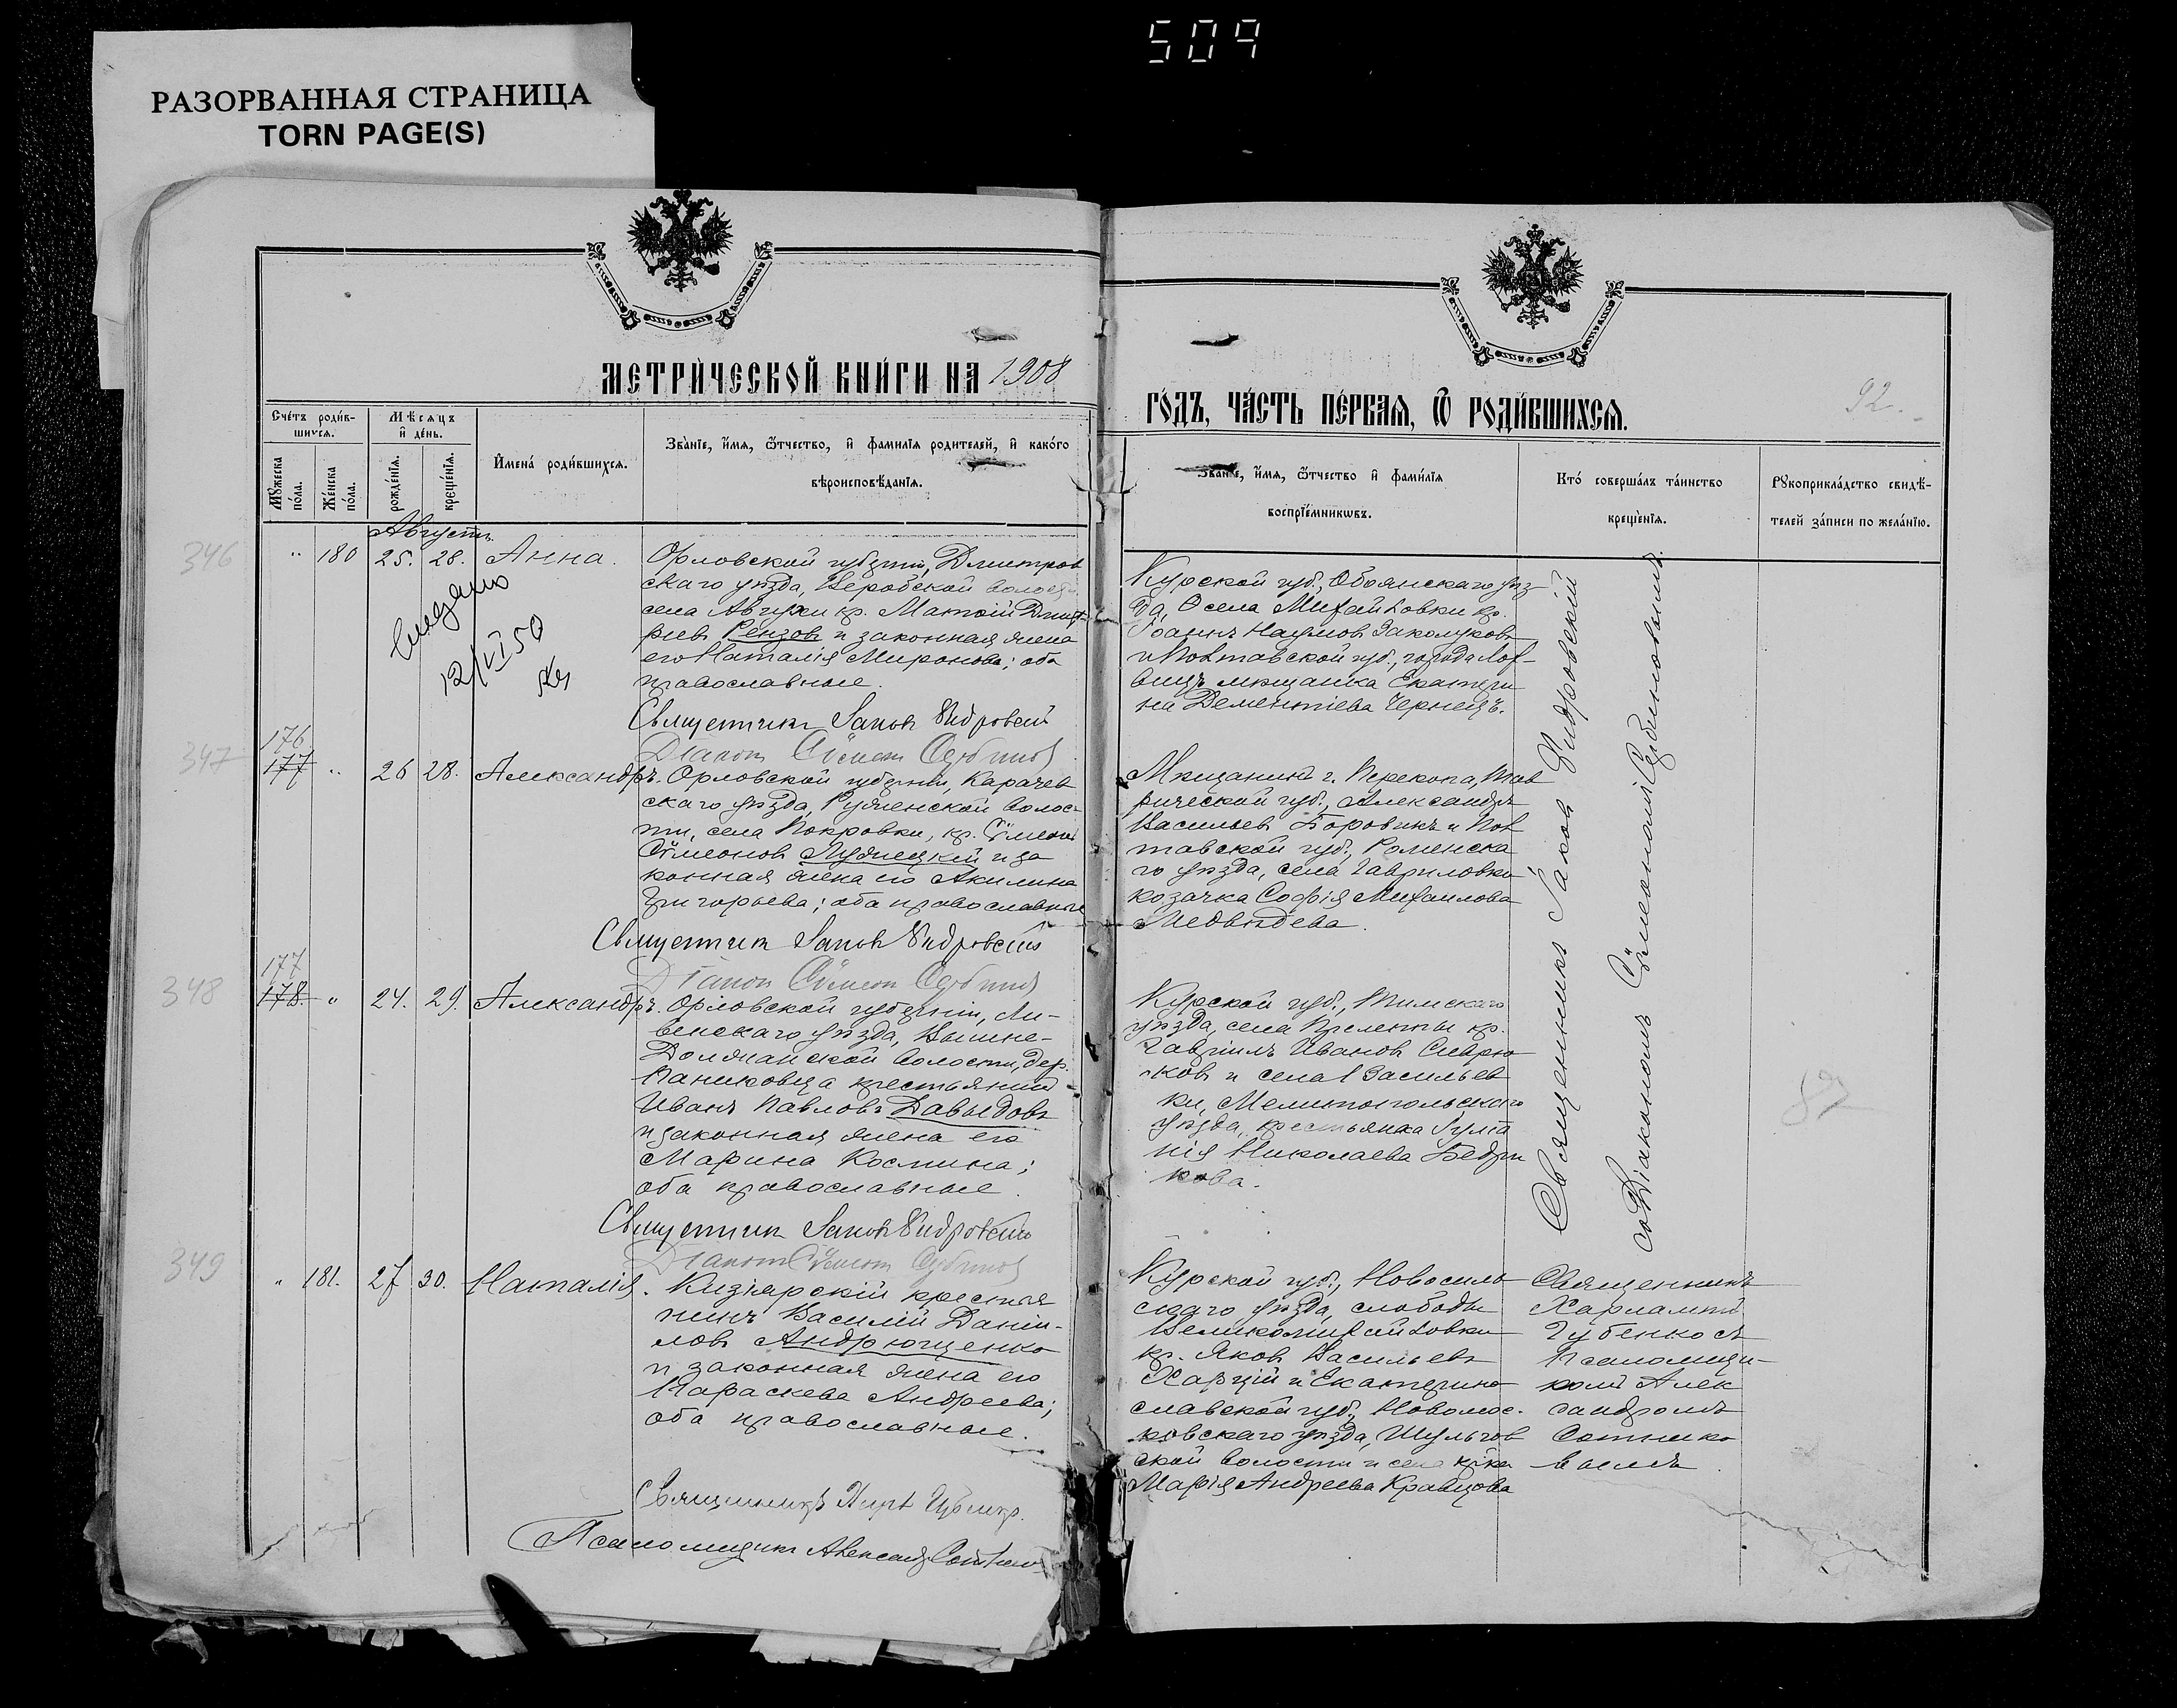 509
РАЗОРВАННАЯ СТРАНИЦА
TORN PAGE(S)
МЕТРИ́ЧЕСКОЙ КНИ́ГИ НА 1908
ГО́ДЪ, ЧА́СТЬ ПЕ́РВАѦ, Ѿ РОДИ́ВШИХСѦ.
92.
Сче́тъ роди́в-
шихся.
Мѣсяцъ
и҆ де́нь.
Мꙋжеска по́ла.
Же́нска по́ла.
рожде́нїѧ.
креще́нїѧ.
И҆мена̀ роди́вшихсѧ.
Зва́нїе, и҆́мѧ, ѻ҆́тчество, и҆ фами́лїѧ роди́телей, и҆ како́гѡ
вѣроисповѣ́данїѧ.
Зва́нїе, и҆́мѧ, ѻ҆́тчество и҆ фами́лїѧ
воспрїе́мникѡвъ.
Кто̀ соверша́лъ та́инство
креще́нїѧ.
Рꙋкоприкла́дство свидѣ́-
телей за́писи по жела́нїю.
Августъ
346
" 180 25. 28. Анна.
Орловской губерніи, Дмитров
скаго уѣзда, Веробской волости
села
кр. Матѳій Дмит-
ріевъ Рензовъ и законная жена
его Наталія Миронова; оба
православные.
12/VI 50
Священникъ Іаковъ
Діаконъ Сѷмеонъ
Курской губ., Обоянскаго уѣз
да, села Михайловки кр.
Іоаннъ Наумовъ
и Полтавской губ., города Лох-
вицъ мѣщанка Екатери
на Дементіева Чернецъ.
347
176
177 " 26 28. Александръ.
Орловской губерніи, Карачев
скаго уѣзда, волос-
ти, села Покровки, кр. Сѷмеонъ
Сѷмеоновъ и за
конная жена его Акилина
Григорьева; оба православные
Священникъ Іаковъ
Діаконъ Сѷмеонъ
Мѣщанинъ г. Перекопа, Тав
рической губ., Александръ
Васильевъ Боровикъ и Пол
тавской губ., Роменска
го уѣзда, села Гавриловки
козачка Софія Михаилова
Медвѣдева.
348
177
178. " 24. 29. Александръ.
Орловской губерніи, Ли-
венскаго уѣзда, Вышне-
Должанской волости, дер.
крестьянинъ
Иванъ Павловъ Давыдовъ
и законная жена его
Марина Космина;
оба православные.
Священникъ Іаковъ
Діаконъ Сѷмеонъ
Курской губ., Тимскаго
уѣзда, села кр.
Гавріилъ Ивановъ
ковъ и села Васильев
ки, Мелитопольскаго
уѣзда, крестьянка Іуліа
нія Николаева Бедри
кова.
Священникъ Іаковъ
со Діакономъ Сѷмеономъ
82
349
" 181. 27 30. Наталія.
Кизіярскій крестья
нинъ Василій Даніи-
ловъ Андрющенко
и законная жена его
Параскева Андреева;
оба православные.
Священникъ
Псаломщикъ Александръ
Курской губ., Новосиль
скаго уѣзда, слободы
Великомихайловки
кр. Яковъ Васильевъ
и Екатерино
славской губ., Новомос-
ковскаго уѣзда,
ской волости и села кр-ка
Марія Андреева Кравцова
Священникъ
Харлампій
Губенко съ
Псаломщи-
комъ Алек
сандромъ
Сотнико
вымъ.